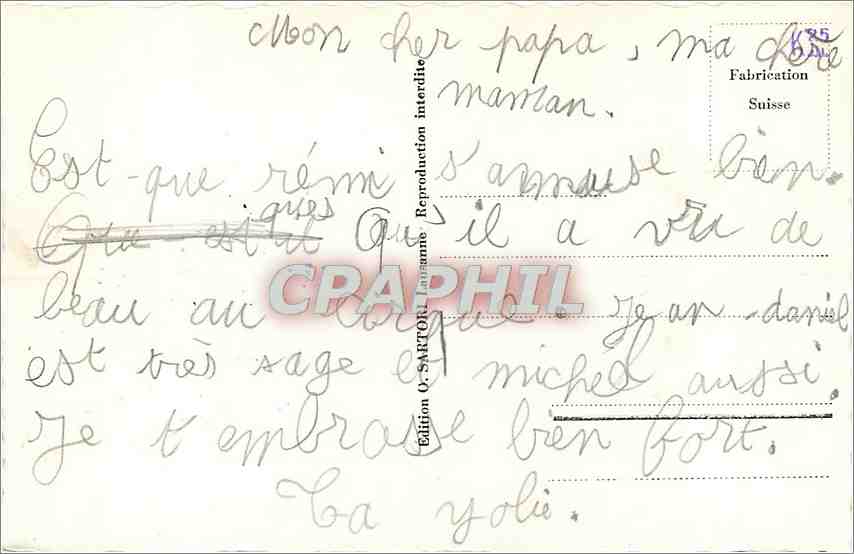 Mon cher papa, ma chère
maman.
Fabrication
Suisse
Est-que rémi s'amuse bien.
Qu'il a vu de
beau au cirque. Jean-daniel
est très sage et michel aussi.
Je t'embrasse bien fort.
Ta yolie.
Édition O. SARTORI Lausanne - Reproduction interdite
CPAPHIL